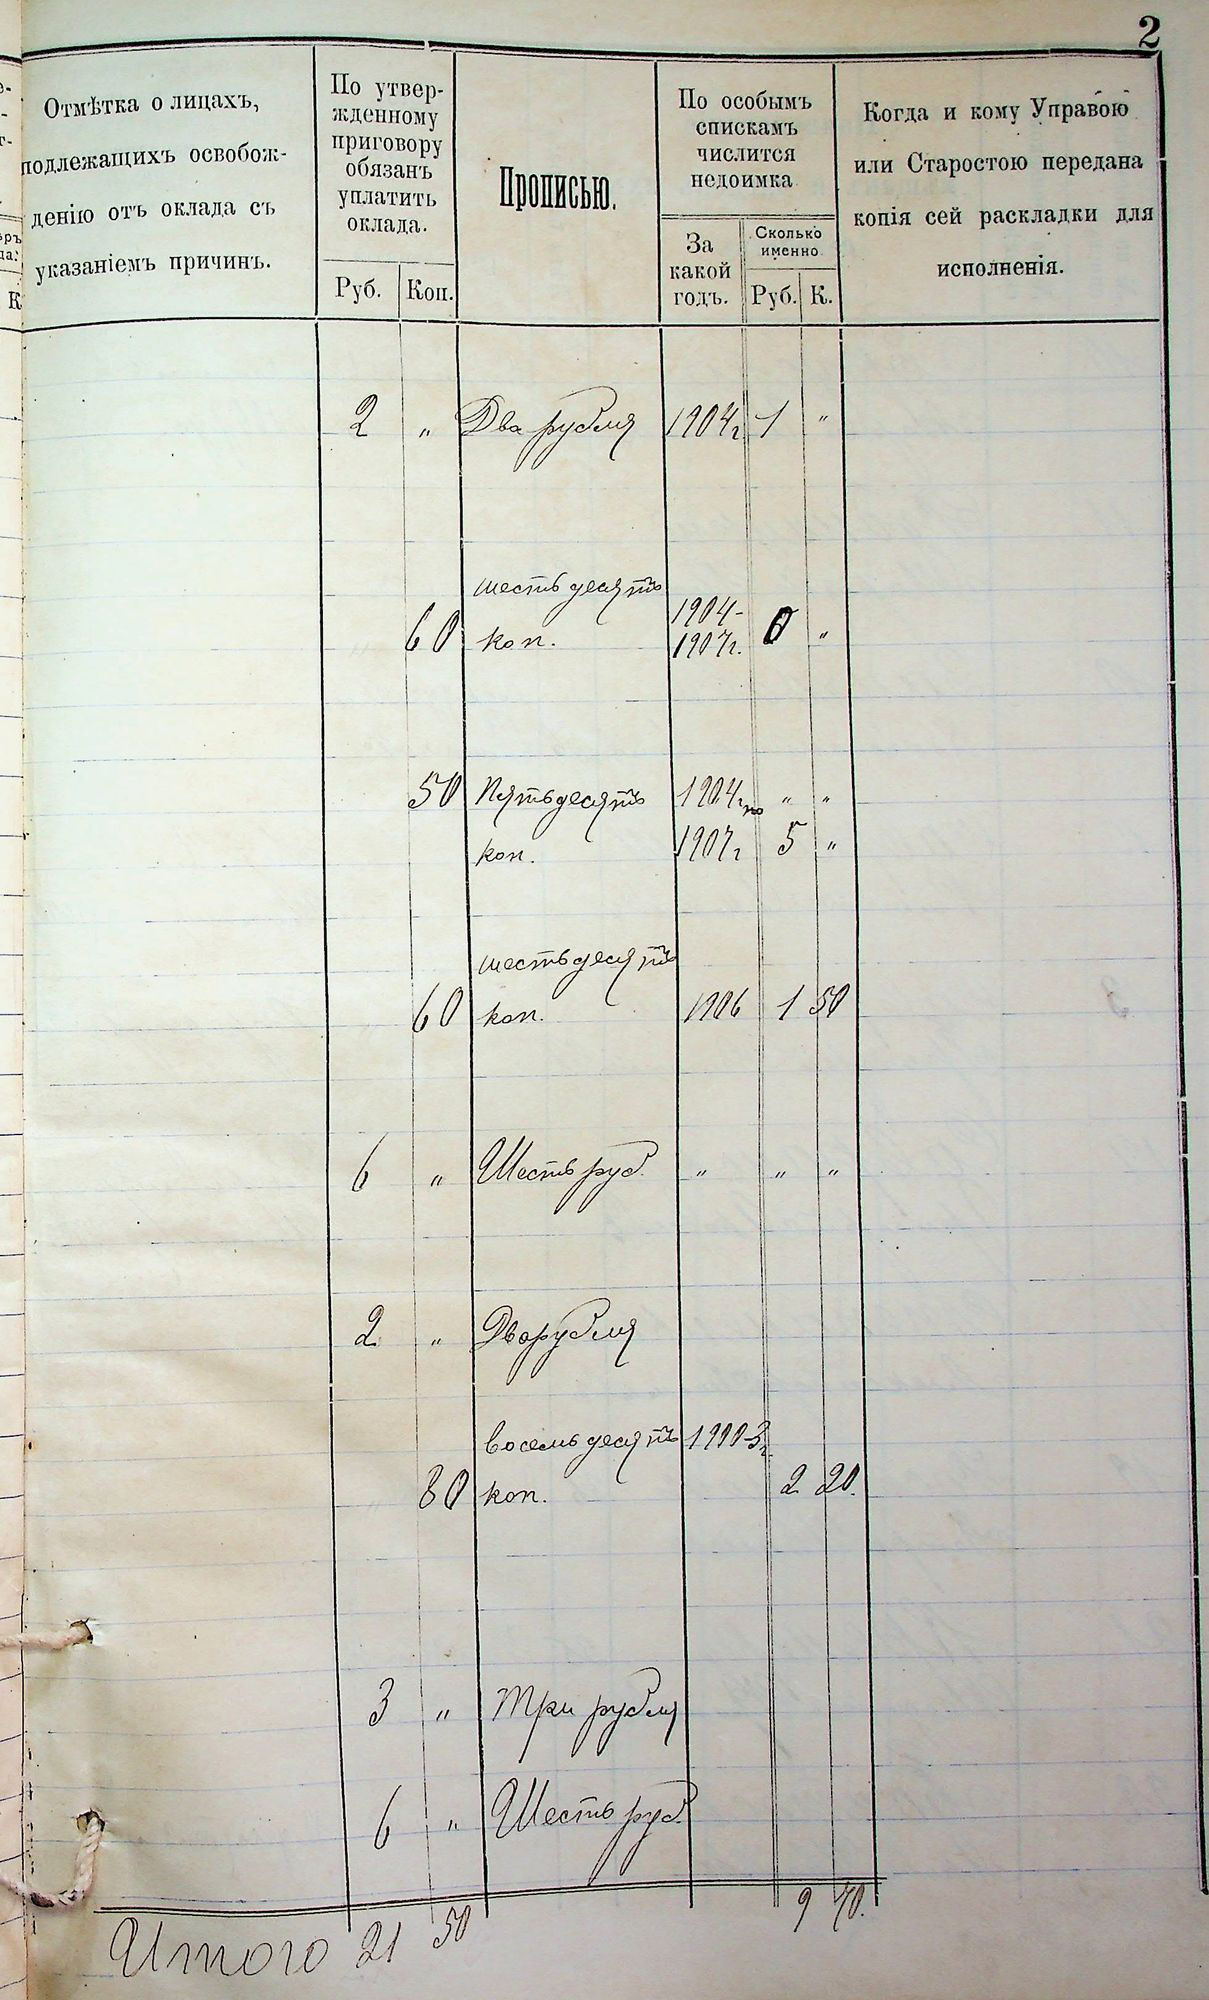 2
Отмѣтка о лицахъ,
подлежащихъ освобож-
денію отъ оклада съ
указаніемъ причинъ.
По утвер-
жденному
приговору
обязанъ
уплатить
оклада.
Руб. Коп.
Прописью.
По особымъ
спискамъ
числится
недоимка
За
какой
годъ.
Сколько
именно
Руб. К.
Когда и кому Управою
или Старостою передана
копія сей раскладки для
исполненія.
2 „ Два рубля 1904г 1 „
шестьдесятъ
60 коп. 1904-
1907г. 0 „
50 Пятьдесятъ 1904г по „ „
коп. 1907г 5 „
шестьдесятъ
60 коп. 1906 1 50
6 „ Шесть руб. „ „ „
2 „ Два рубля
восемьдесятъ 1900-3г.
80 коп. 2 20.
3 „ Три рубля
6 „ Шесть руб.
Итого 21 50 9 70.